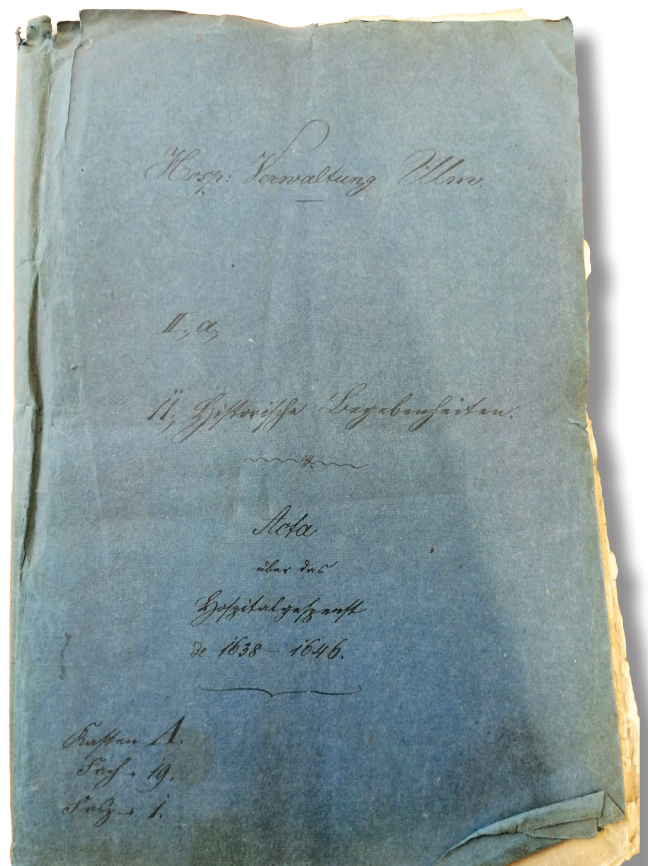 Hosp: Verwaltung Ulm.
II, a,
11, Historische Begebenheiten.
Acta
über das
Hospitalgespenst
de 1638 – 1646.
Kasten A.
Fach - 19.
Fasz - 1.